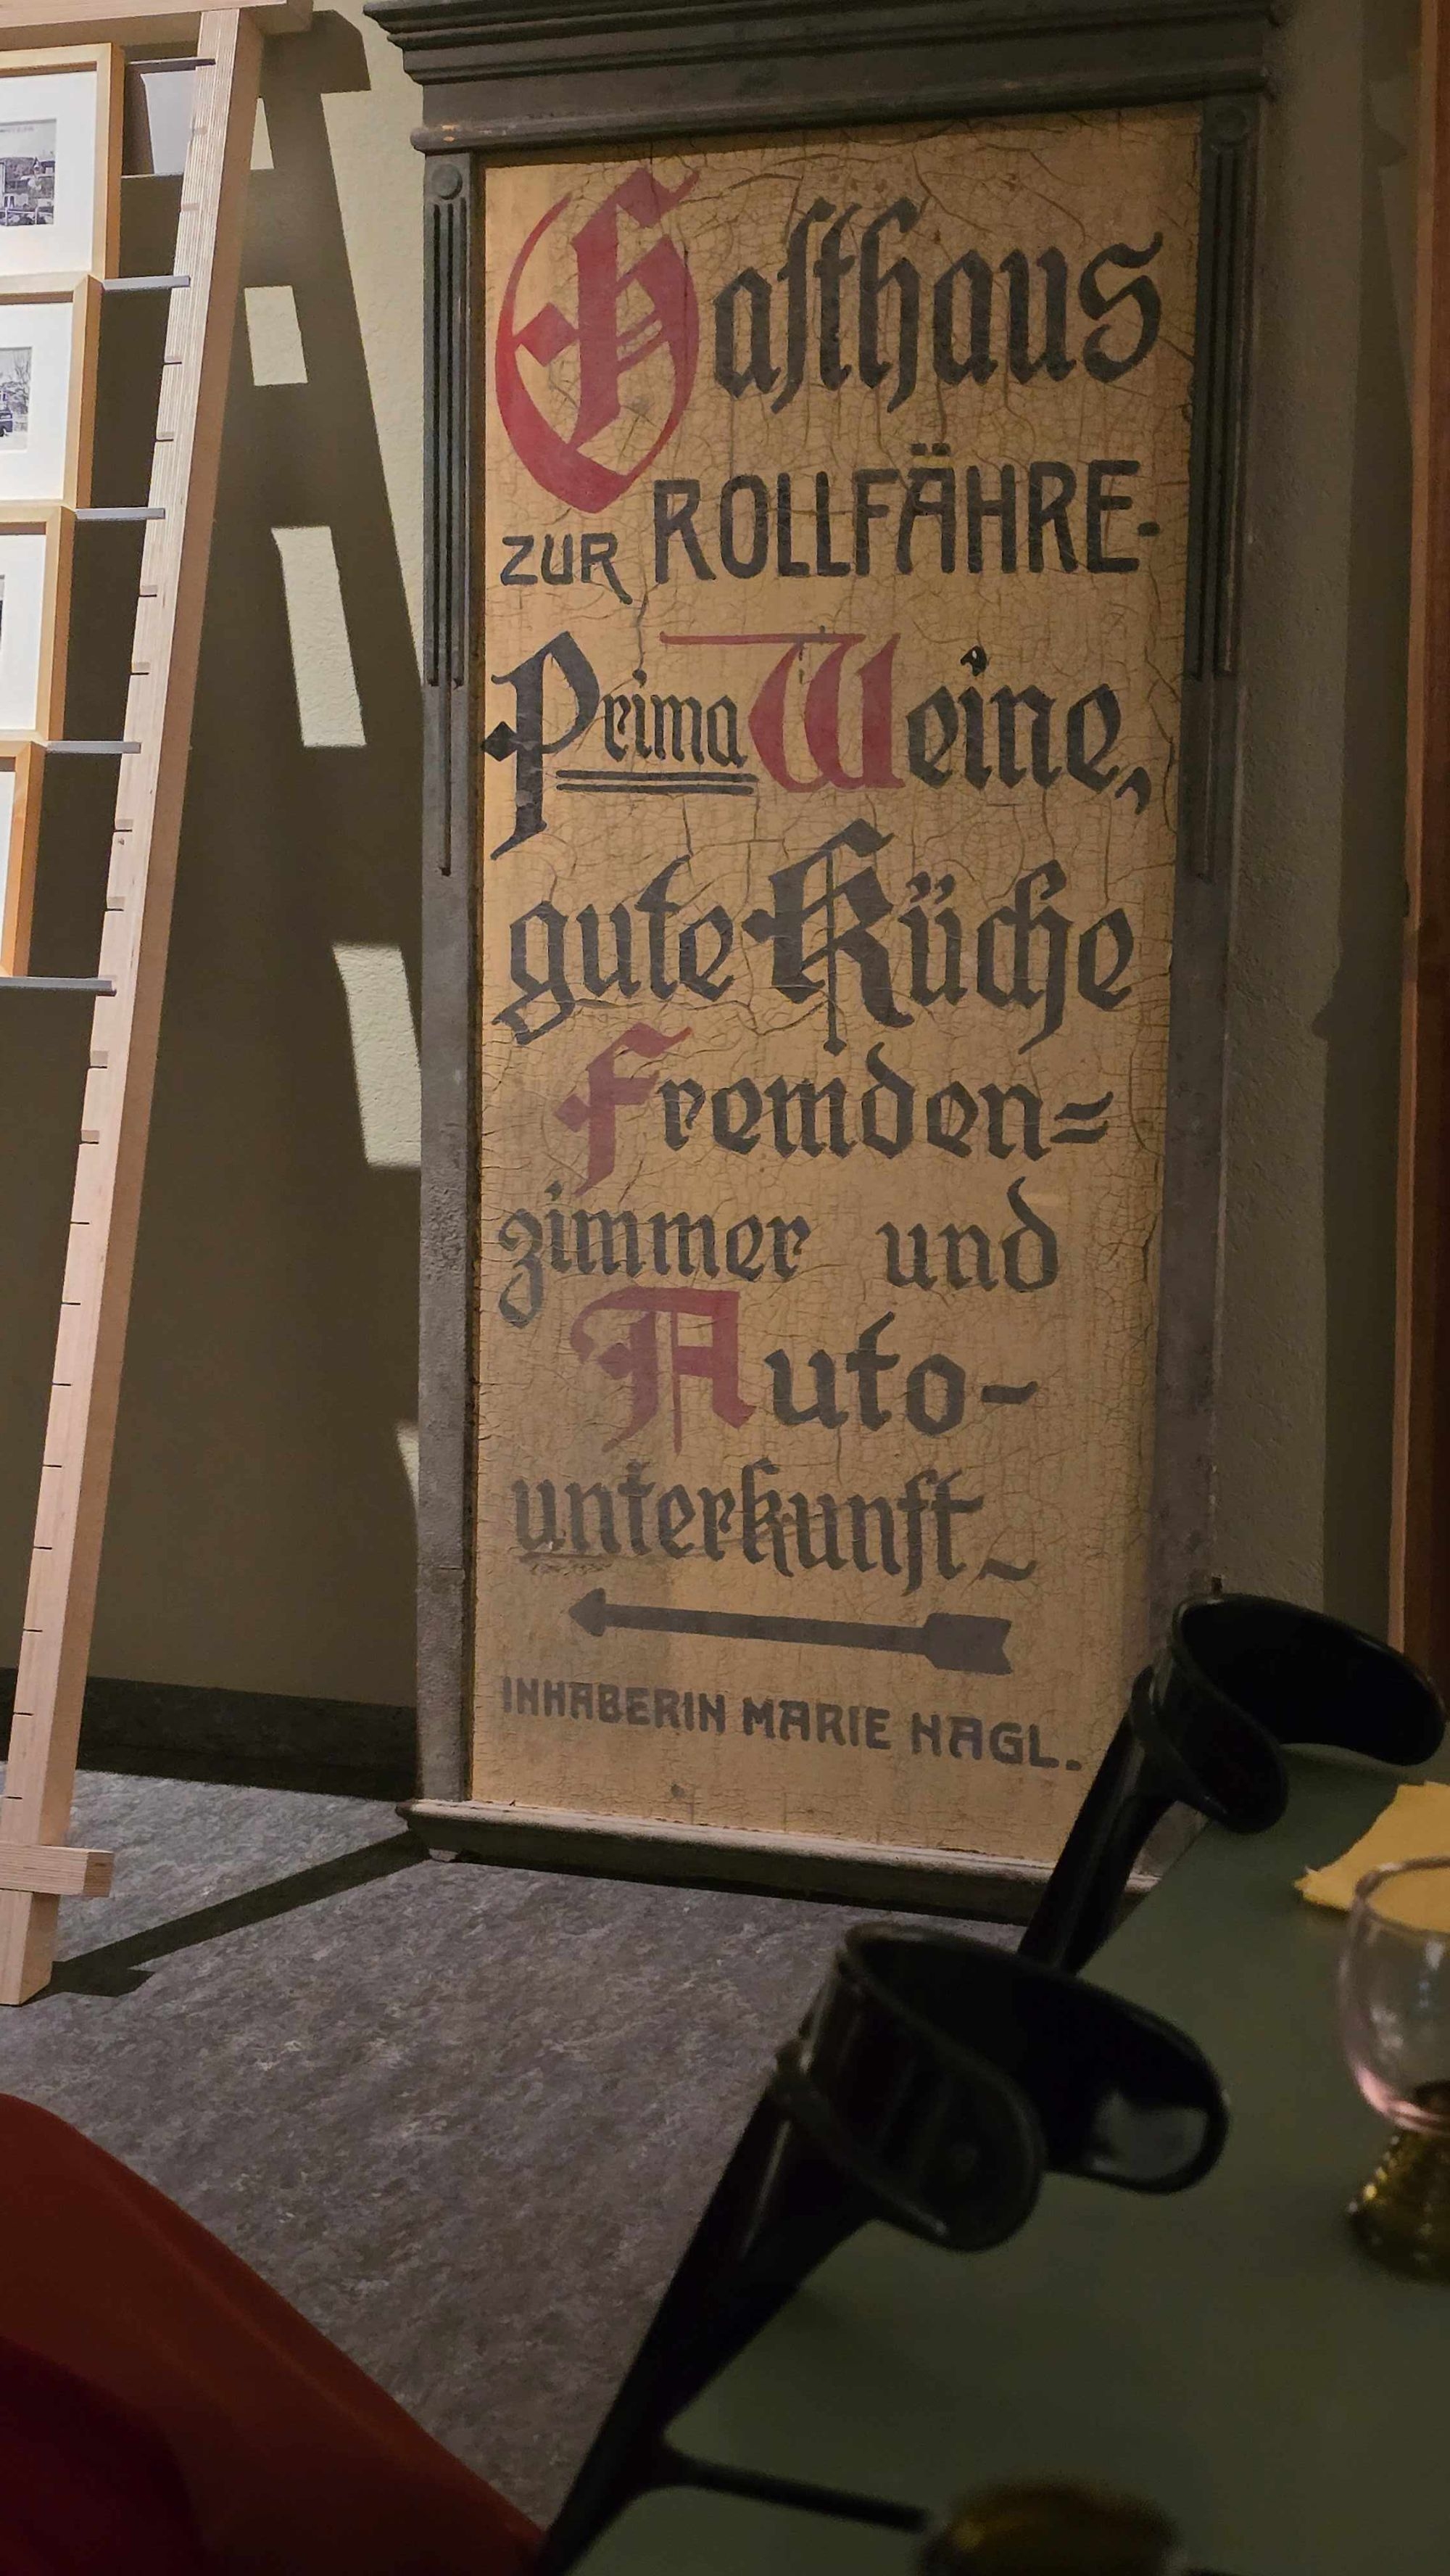 Gasthaus
ZUR ROLLFÄHRE-
Prima Weine,
gute Küche
Fremden=
zimmer und
Auto-
unterkunft
INHABERIN MARIE NAGL.